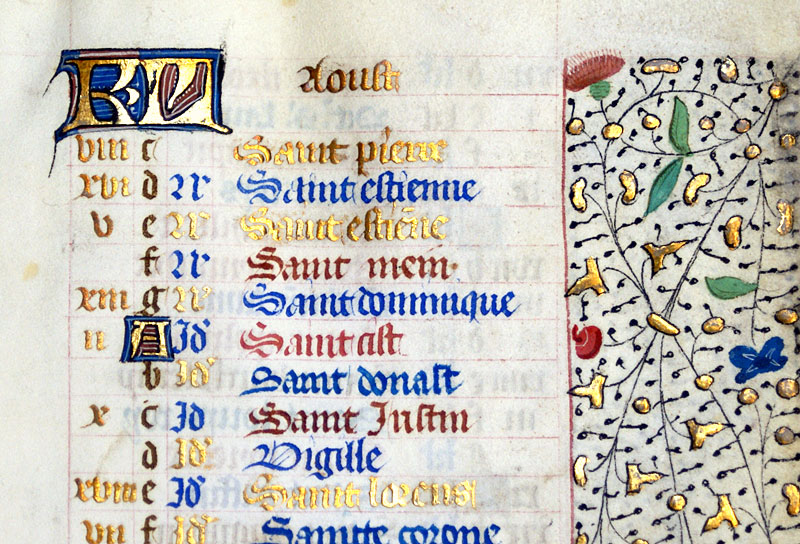 KL Aoust
viii c Saint pierre
xvi d Nr Saint estienne
v e Nr Saint estiene
f Nr Saint mein
xiii g Nr Saint dominique
ii A Id Saint sist
b Id Saint donast
x c Id Saint Justin
d Id Vigille
xviii e Id Saint lorens
vii f Id Saincte corone